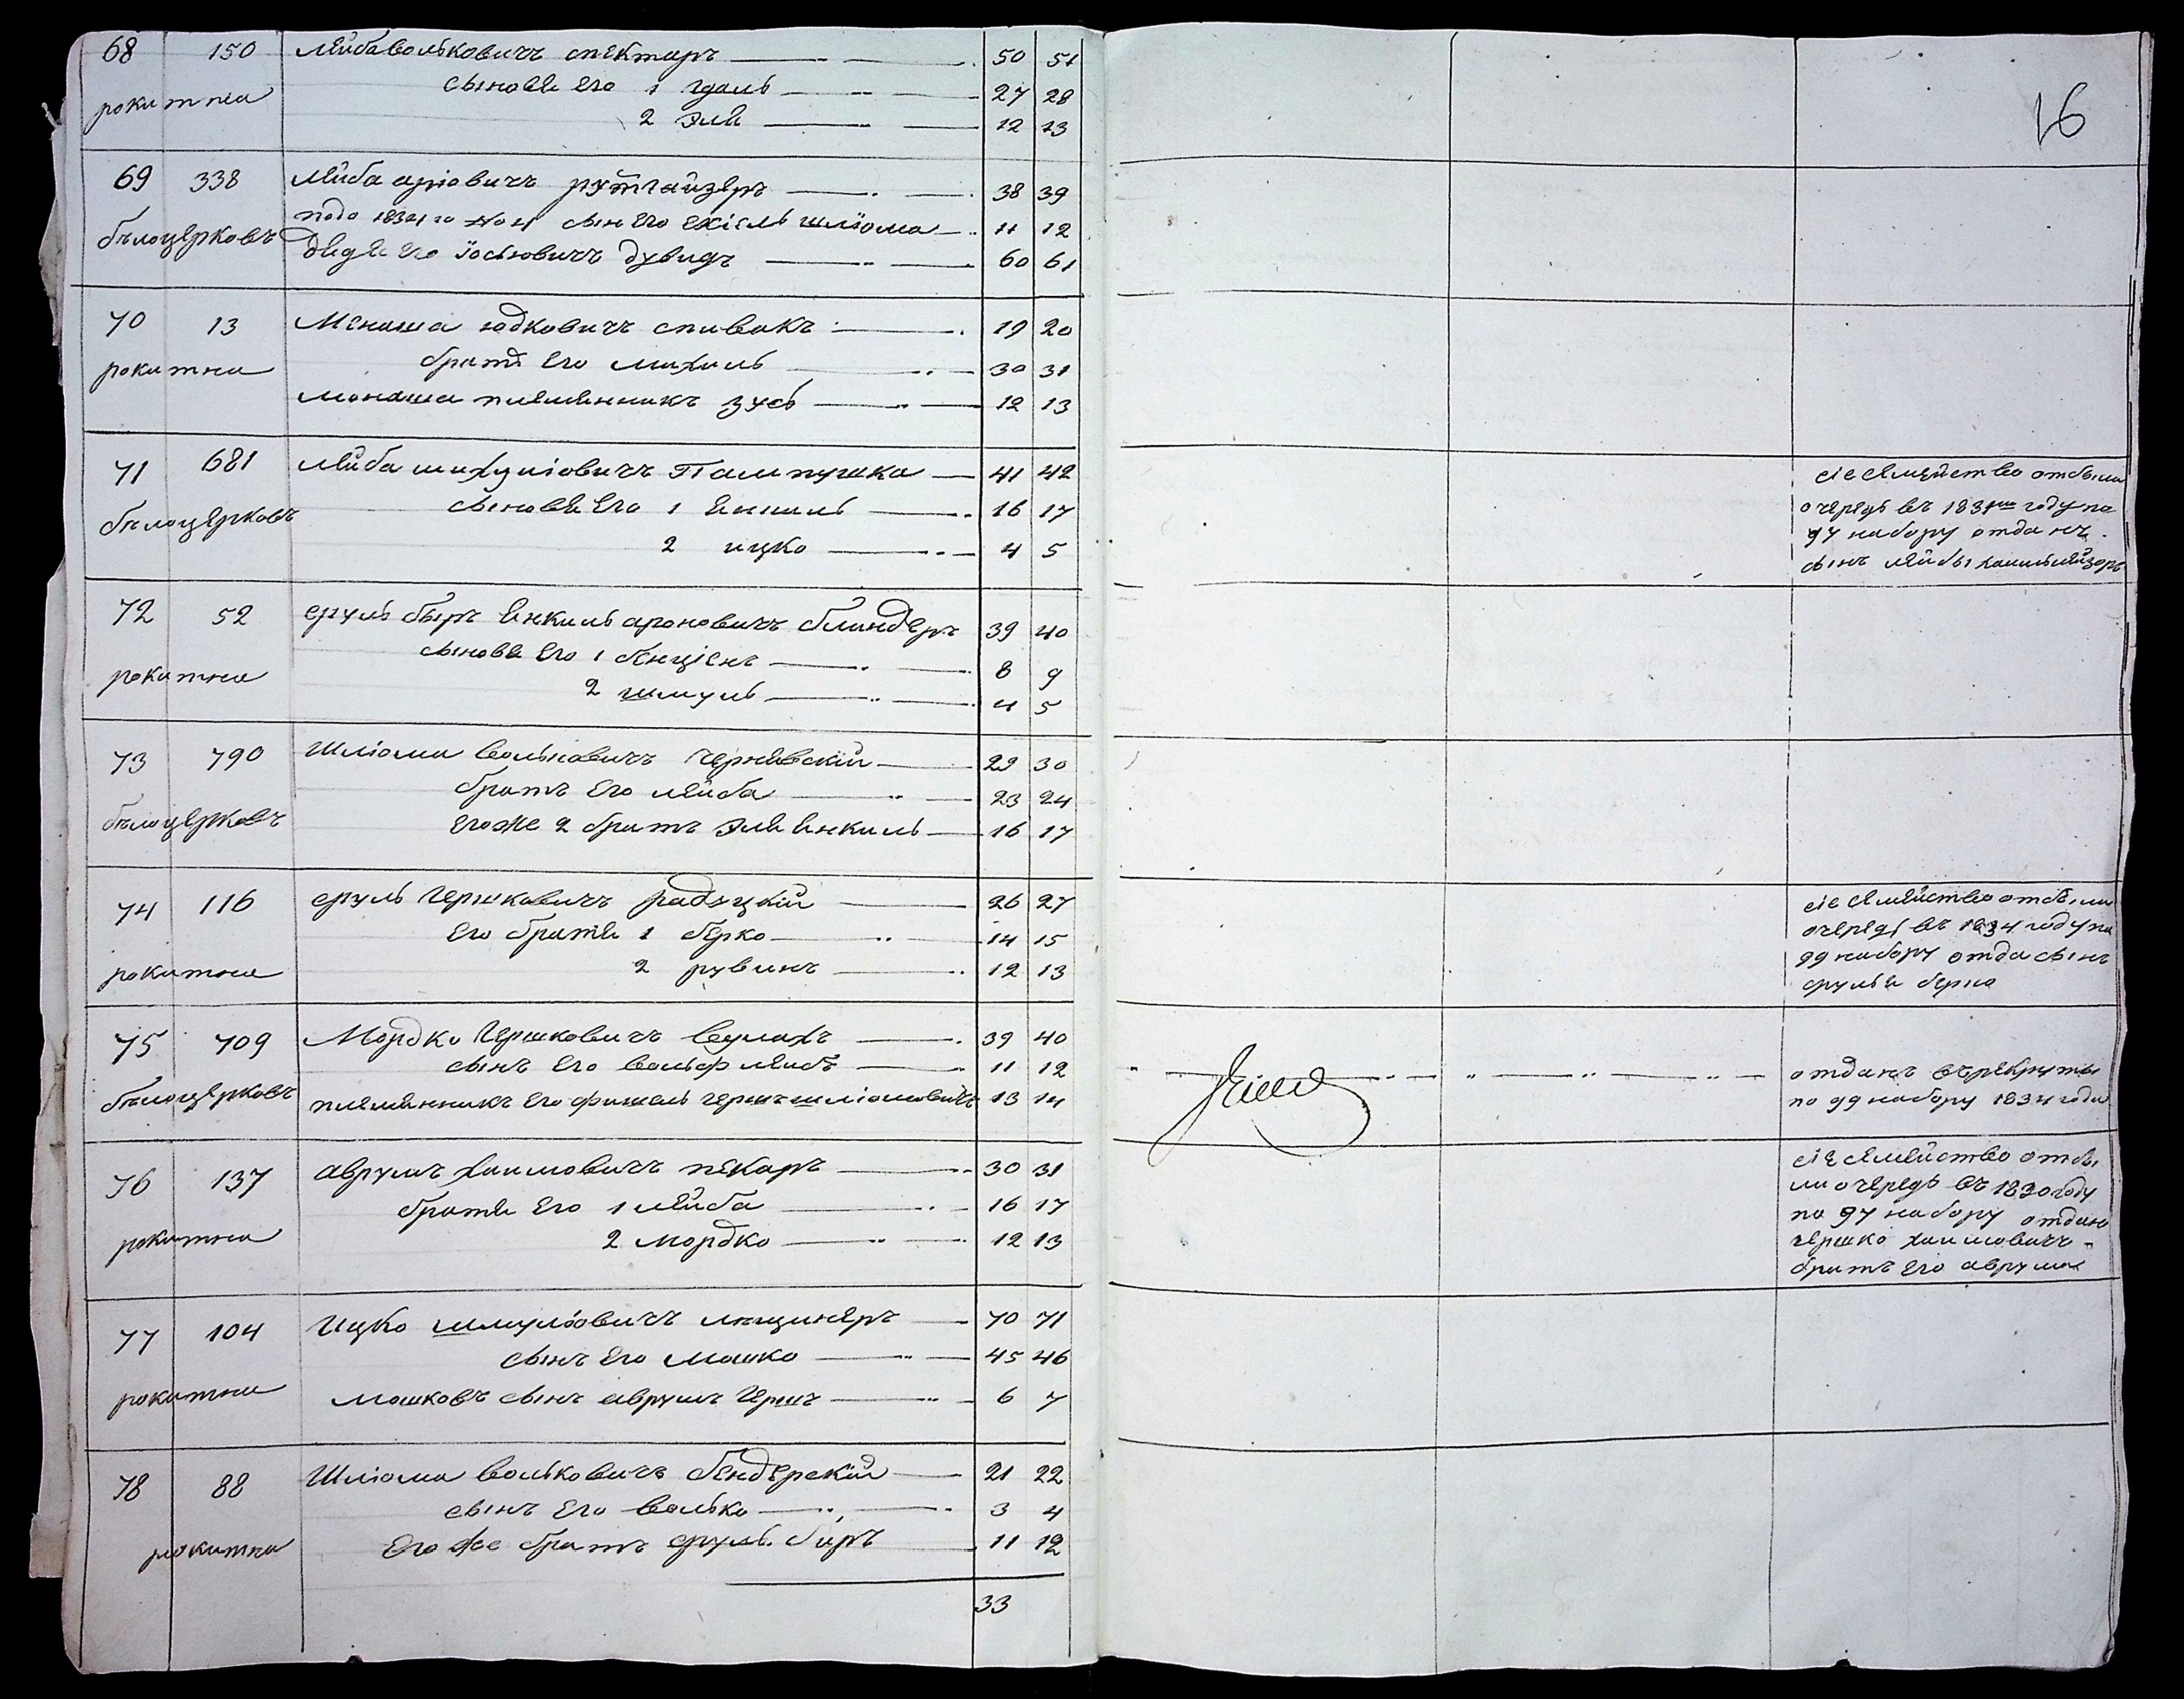 68 150 Лейба Вольковичъ спектаръ 50 51
сынове его 1 гдаль 27 28
рокитна
2 Эле 12 13
16
69 338 Лейба аріовичъ рутгайзеръ 38 39
подо 1834 го No 4 сынъ его ехіель шліома 11 12
бѣлоцерковъ
дядя его Іосіовичъ дувидъ 60 61
70 13 Менаша юдковичъ спивакъ 19 20
рокитна
братъ его михиль 30 31
монаша племянникъ зусь 12 13
71 681 Лейба шихуліовичъ Пампушка 41 42
сынове его 1 Янкиль 16 17
бѣлоцерковъ
2 ицко 4 5
сіе семейство отбыла
очередь въ 1831мъ году по
97 набору отданъ
сынъ лейбы
72 52 сруль бынъ Янкиль ароновичъ блиндеръ 39 40
сынове его 1 бенціенъ 8 9
рокитна
2 шмуль 4 5
73 790 Шліома Вольковичъ чернявскій 29 30
братъ его лейба 23 24
бѣлоцерковъ
егоже 2 братъ Эле Янкиль 16 17
74 116 сруль Гершковичъ радзцкій 26 27
его братя 1 берко 14 15
рокитна
2 рувинъ 12 13
сіе семейство отбыла
очередь въ 1834 году по
99 набору отда сынъ
сруля берко
75 709 Мордко Гершковичъ Валахъ 39 40
сынъ его вольф лейбъ 11 12
бѣлоцерковъ
племянникъ его фишель гершъ шліомовичъ 13 14
отданъ въ рекруты
по 99 набору 1834 года
76 137 аврумъ хаимовичъ пекаръ 30 31
братя его 1 лейба 16 17
рокитна
2 мордко 12 13
сіе семейство отбы
ла очередь въ 1830 году
по 97 набору отдано
гершко хаимовичъ
братъ его аврума
77 104 Ицко шмуліовичъ лищинеръ 70 71
сынъ его мошко 45 46
рокитна
мошковъ сынъ аврумъ Гершъ 6 7
78 88 Шліома Вольковичъ бендерскій 21 22
сынъ его волько 3 4
рокитна
его же братъ сруль беръ 11 12
33